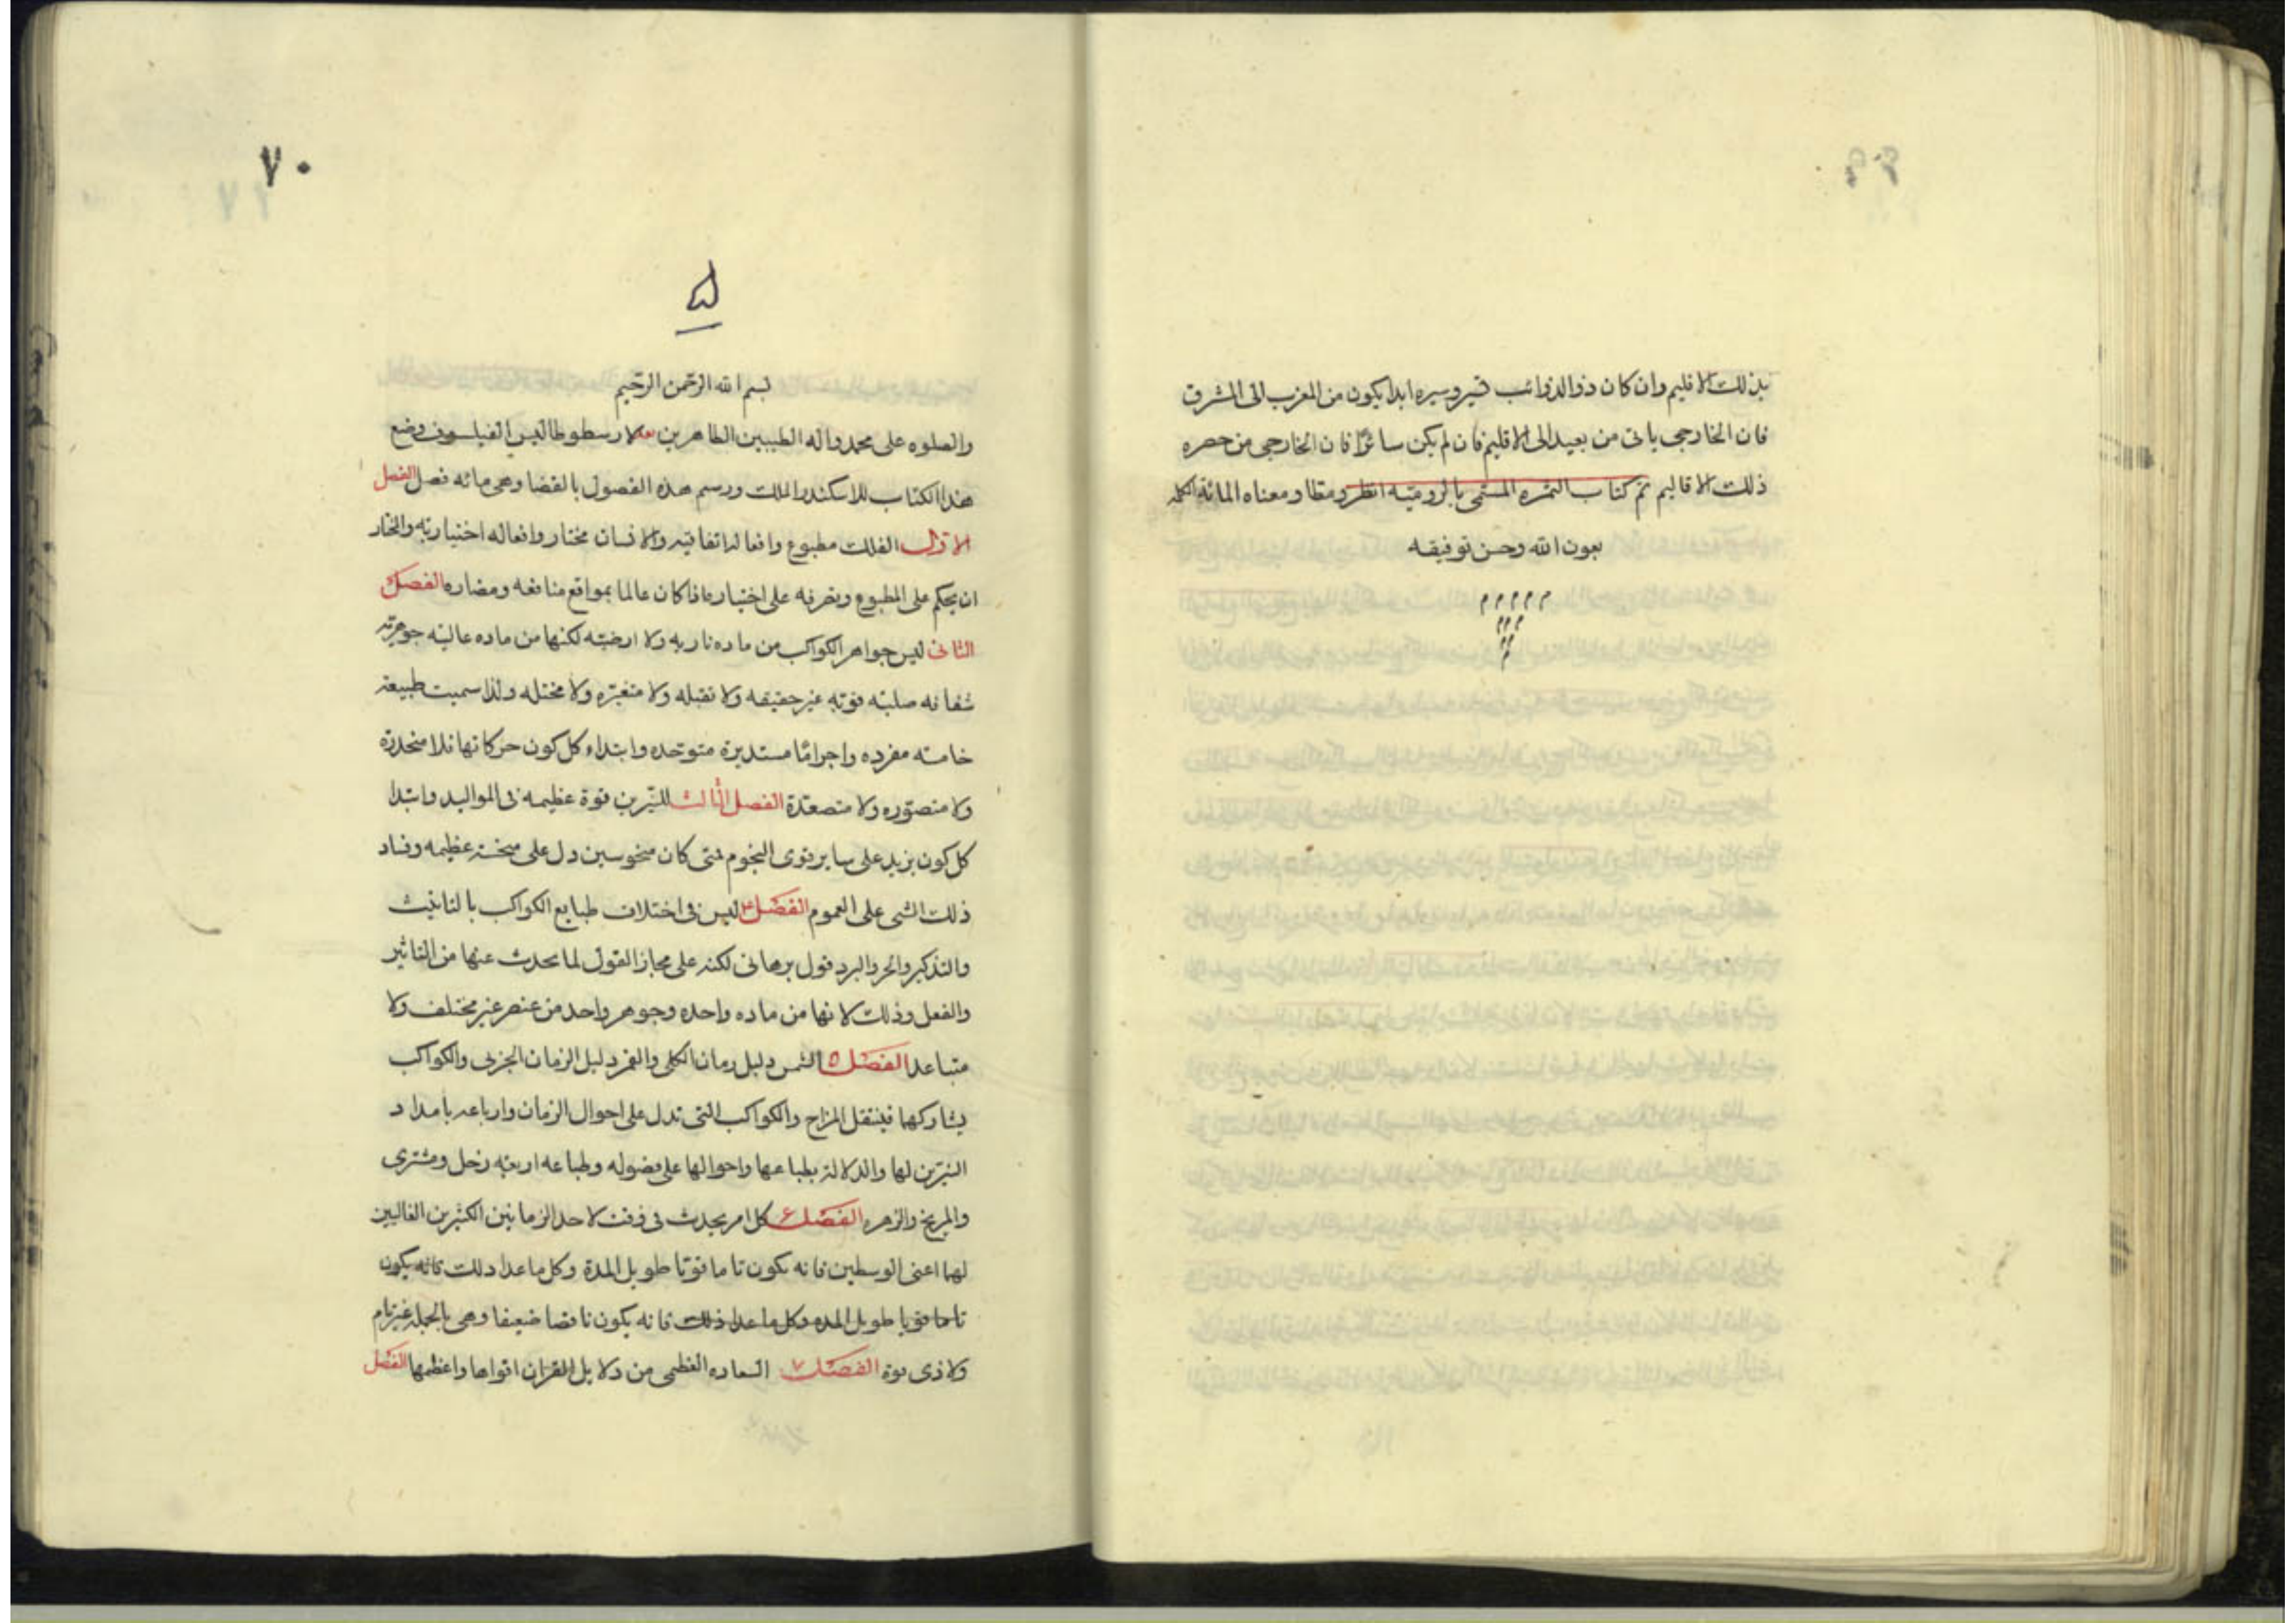 بذلك الاقليم وان كان ذو الذوائب قيروسيره ابدا يكون من المغرب الى المشرق
فان الخارجى ياتى من بعيد الى الاقليم فان لم يكن سائرًا فان الخارجى من حصره
ذلك الاقاليم تم كتاب الثمره المسمى بالروميه انظرومطا ومعناه المائة الكلمه
بعون الله وحسن توفيقه
م م م م م
م م م
م م
م
٧٠
بسم الله الرحمن الرحيم
والصلوه على محمد واله الطيبين الطاهرين بعد لارسطوطاليس الفيلسوف وضع
هذا الكتاب للاسكندر الملك ورسم هذه الفصول بالقضا وهى مائه فصل الفصل
الاول الفلك مطبوع وافعاله اتفاقيه والانسان مختار وافعاله اختياريه والمختار
ان يحكم على المطبوع ويصرفه على اختياره اذا كان عالما بمواقع منافعه ومضاره الفصل
الثانى ليس جواهر الكواكب من ماده ناريه ولا ارضيه لكنها من ماده عاليه جوهريه
شفافه صلبه قويه غير حقيقه ولا نقبله ولا متغيره ولا مختله ولذا سميت طبيعة
خامسه مفرده واجرامًا مستديرة متوحده وابتداء كل كون حركاتها فلا منحدرة
ولا متصوره ولا متصعدة الفصل الثالث للنيرين قوة عظيمه فى المواليد وابتدا
كل كون يزيد على ساير قوى النجوم فمتى كان منحوسين دل على منحسة عظيمه وفساد
ذلك الشى على العموم الفصل ٤ ليس فى اختلاف طبايع الكواكب بالتانيث
والتذكير والحر والبرد قول برهانى لكنه على مجاز القول لما يحدث عنها من التاثير
والفعل وذلك لانها من ماده واحده وجوهر واحد من عنصر غير مختلف ولا
متباعد الفصل ٥ الشمس دليل زمان الكلى والقمر دليل الزمان الجزئى والكواكب
يشاركها فينتقل المزاج والكواكب التى تدل على احوال الزمان وارباعه بامداد
النيرين لها والدلالة بطباعها واحوالها على فصوله وطباعه اربعه زحل ومشترى
والمريخ والزهره الفصل ٦ كل امر يحدث فى وقت لاحد الزمانين الكثيرين الغالبين
لهما اعنى الوسطين فانه يكون تاما قويا طويل المدة وكل ما عدا ذلك فانه يكون
تاما قويا طويل المده وكل ما عدا ذلك فانه يكون ناقصا ضعيفا وهى بالجمله غير تام
ولا ذى قوة الفصل ٧ السعاده العظمى من دلايل القران اقواها واعظمها الفصل